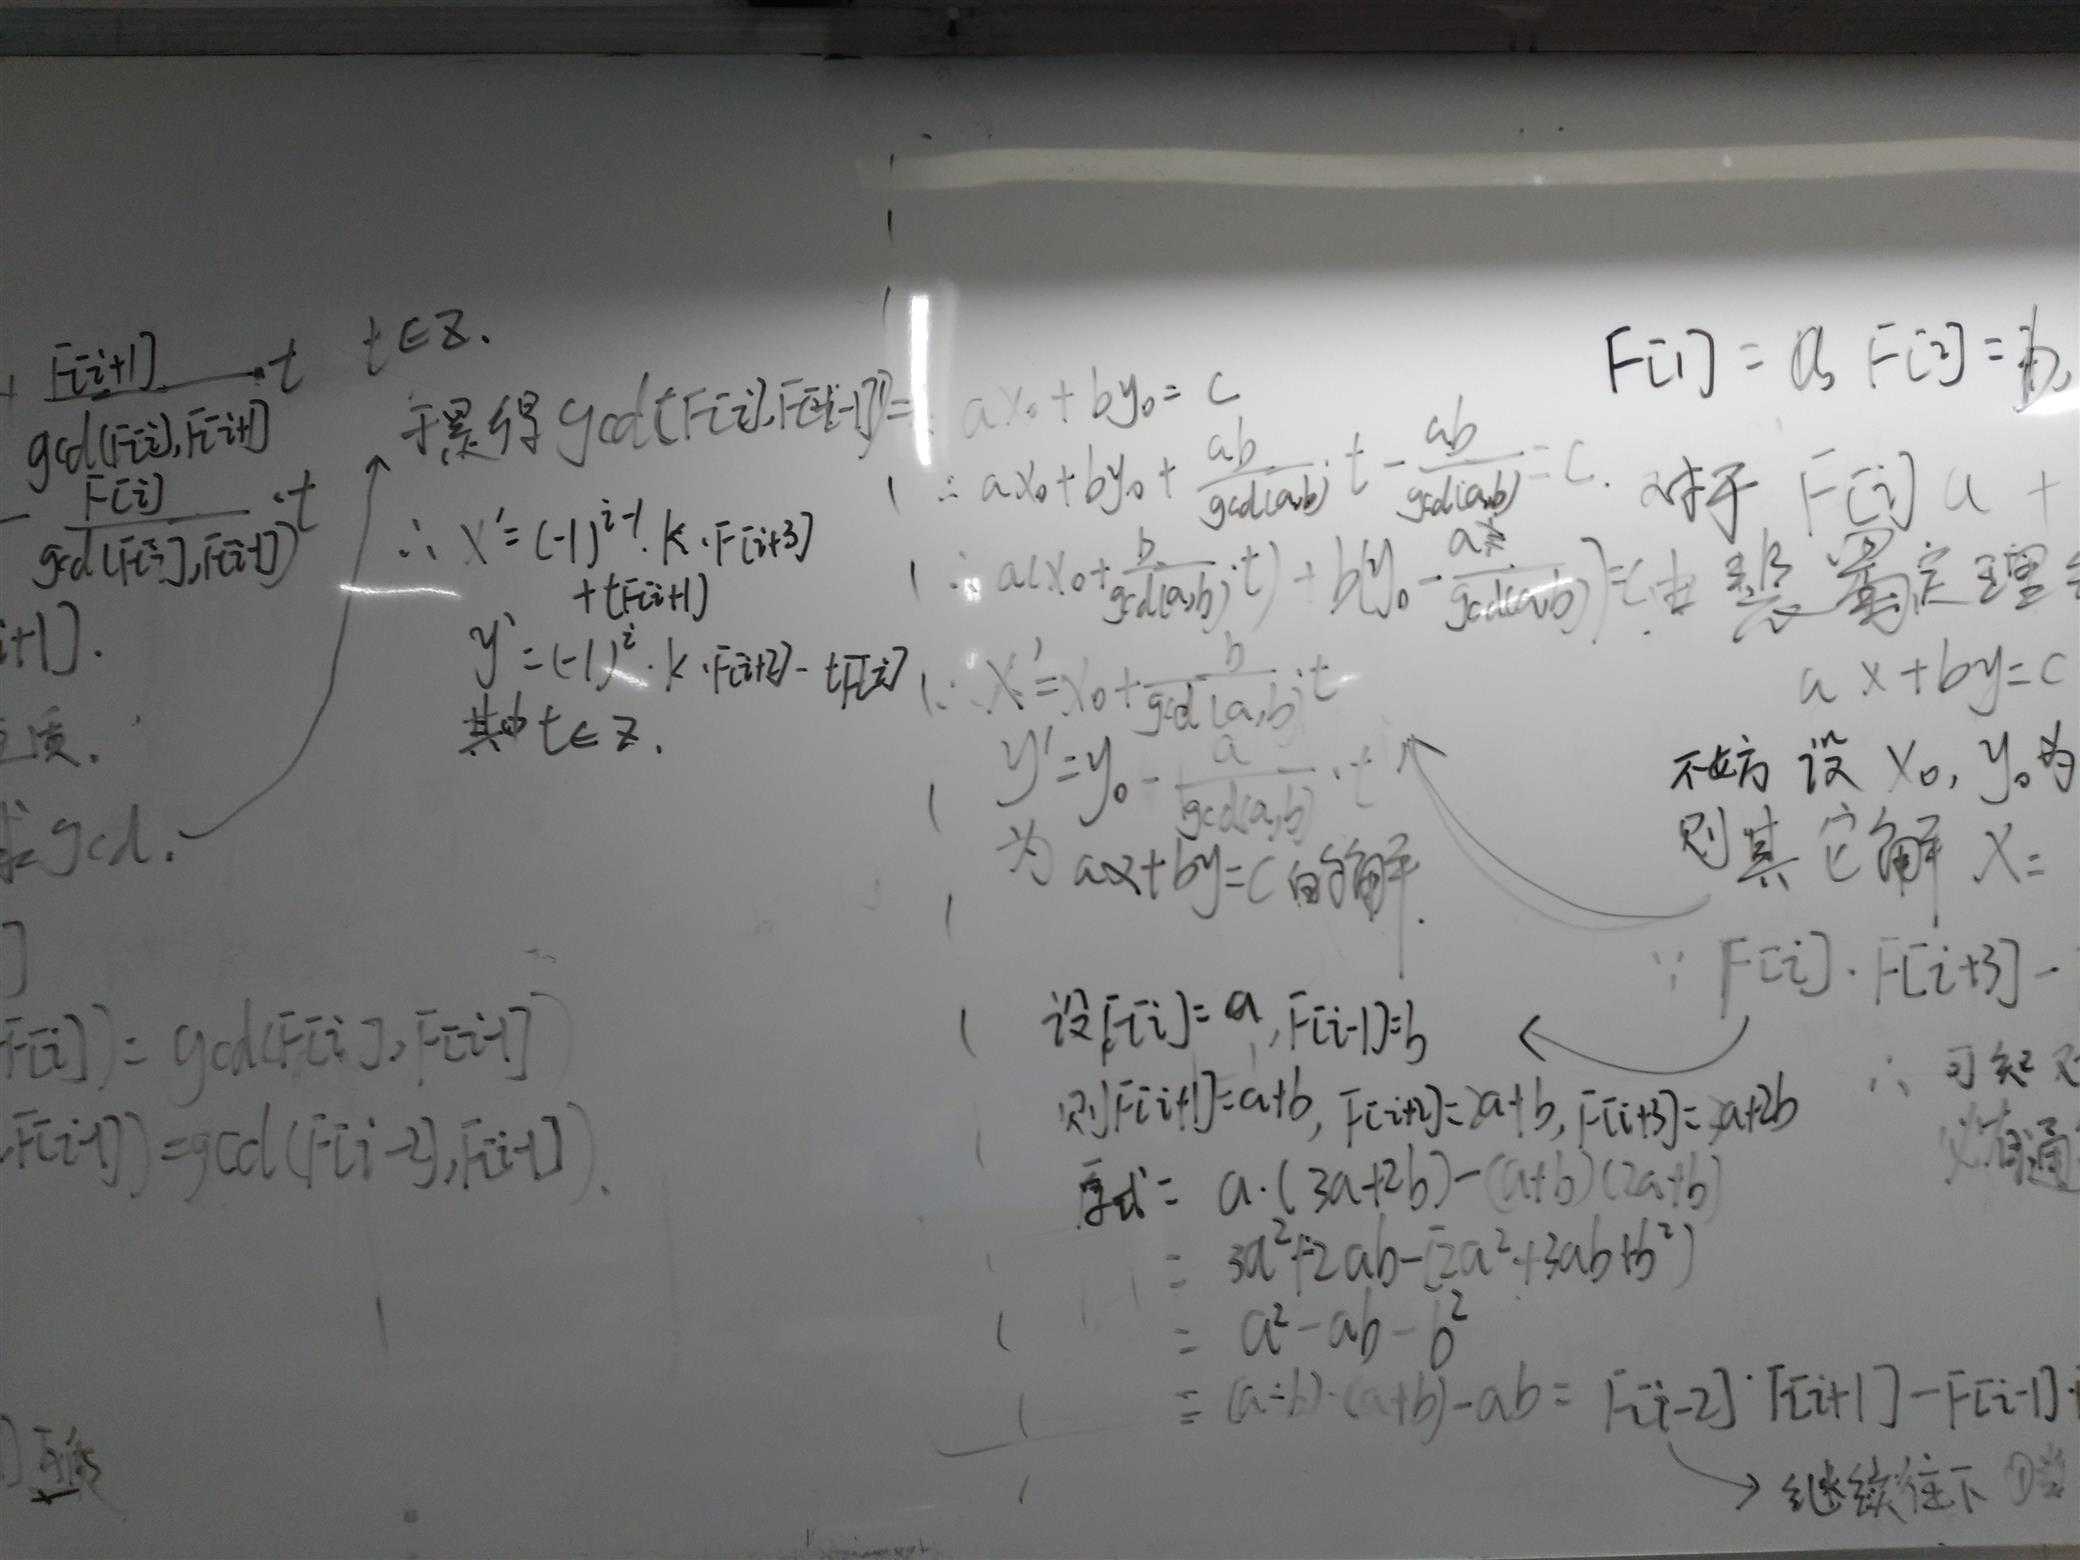 F[i+1]/gcd(F[i],F[i+1]) ·t t∈Z.
F[i]/gcd(F[i],F[i+1]) ·t
i+1].
质.
求gcd.
]
F[i])=gcd(F[i],F[i-1])
F[i-1])=gcd(F[i-2],F[i-1]).
于是得gcd(F[i],F[i-1])=
∴ x'=(-1)^{i-1}·k·F[i+3]
+tF[i+1]
y'=(-1)^i·k·F[i+2]-tF[i]
其中t∈Z.
∵ ax₀+by₀=c
∴ ax₀+by₀+ab/gcd(a,b)·t-ab/gcd(a,b)=c.
∴ a(x₀+b/gcd(a,b)·t)+b(y₀-at/gcd(a,b))=c.
∴ x'=x₀+b/gcd(a,b)·t
y'=y₀-a/gcd(a,b)·t
为ax+by=c的解.
设F[i]=a,F[i-1]=b
则F[i+1]=a+b,F[i+2]=2a+b,F[i+3]=3a+2b
原式=a·(3a+2b)-(a+b)(2a+b)
=3a²+2ab-(2a²+3ab+b²)
=a²-ab-b²
=(a-b)·(a+b)-ab=F[i-2]·F[i+1]-F[i-1]·
继续往下 ①当
F[1]=a, F[2]=b,
对于 F[i]a+
由裴蜀定理
ax+by=c
不妨设 x₀,y₀为
则其它解 x=
∵ F[i]·F[i+3]-
∴ 可知
必有通